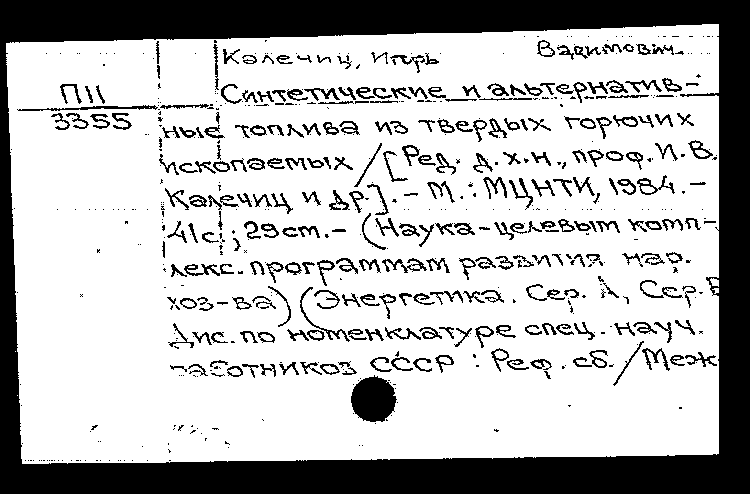 Калечиц, Игорь Вадимович.
П11
3355
Синтетические и альтернатив-
ные топлива из твердых горючих
ископаемых / [Ред. д.х.н., проф. И.В.
Калечиц и др.]. - М. : МЦНТИ, 1984. -
41с. ; 29 cm. - (Наука-целевым комп-
лекс. программам развития нар.
хоз-ва) (Энергетика. Сер. А, Сер.
Дис. по номенклатуре спец. науч.
работников СССР : Реф. сб. / Меж-